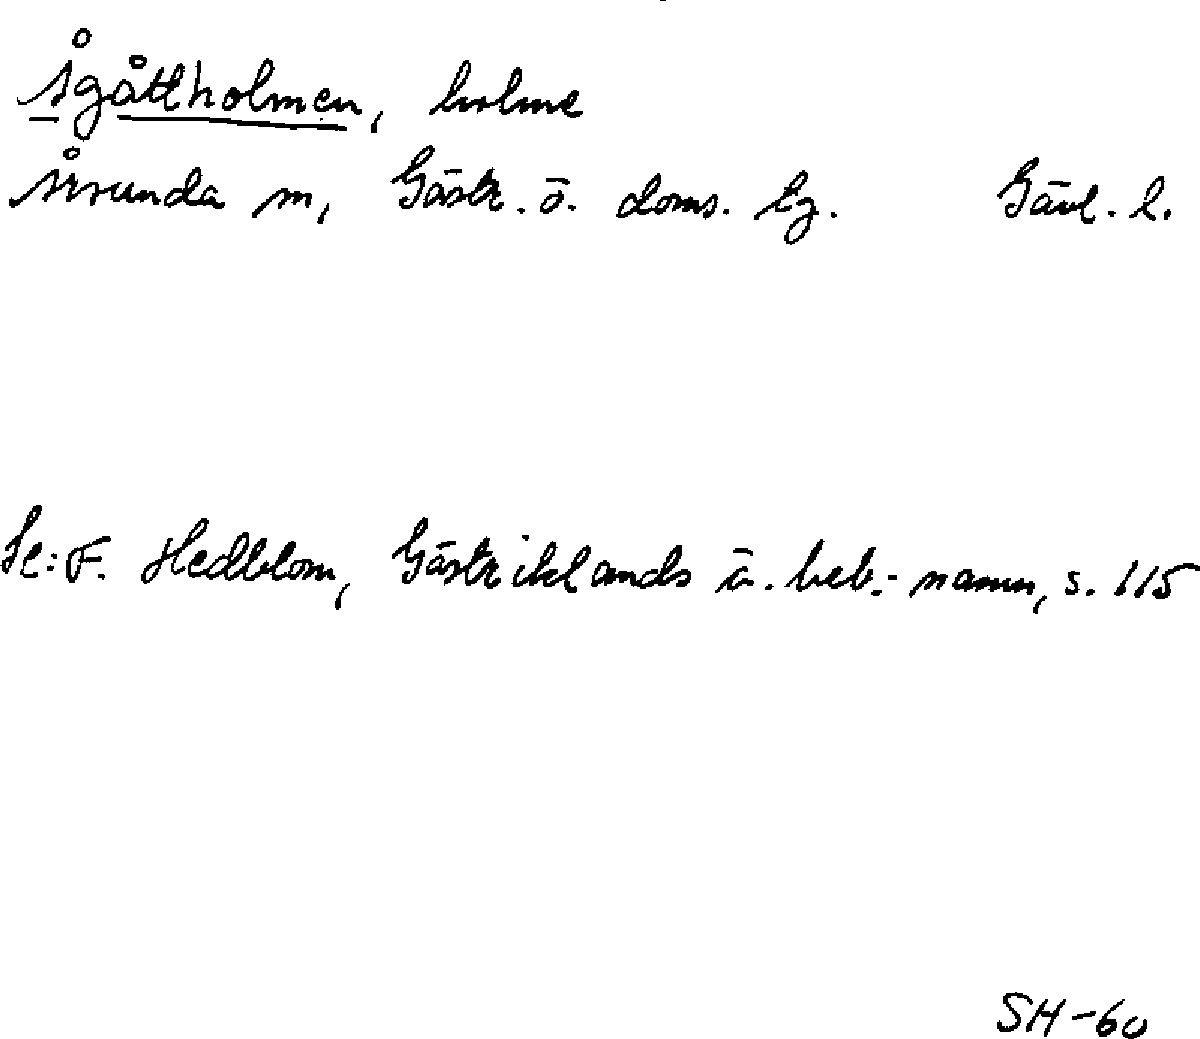 Ågåttholmen, holme
Årsunda sn, Gästr. ö. doms. tg. Gävl. l.
Se: F. Hedblom, Gästriklands ä. beb.-namn, s. 115
SH-60